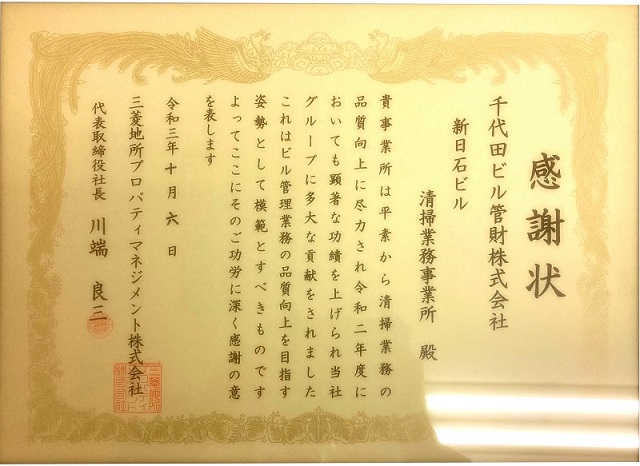 感謝状
千代田ビル管財株式会社
新日石ビル
清掃業務事業所 殿
貴事業所は平素から清掃業務の
品質向上に尽力され令和二年度に
おいても顕著な功績を上げられ当社
グループに多大な貢献をされました
これはビル管理業務の品質向上を目指す
姿勢として模範とすべきものです
よってここにそのご功労に深く感謝の意
を表します
令和三年十月六日
三菱地所プロパティマネジメント株式会社
代表取締役社長 川端 良三